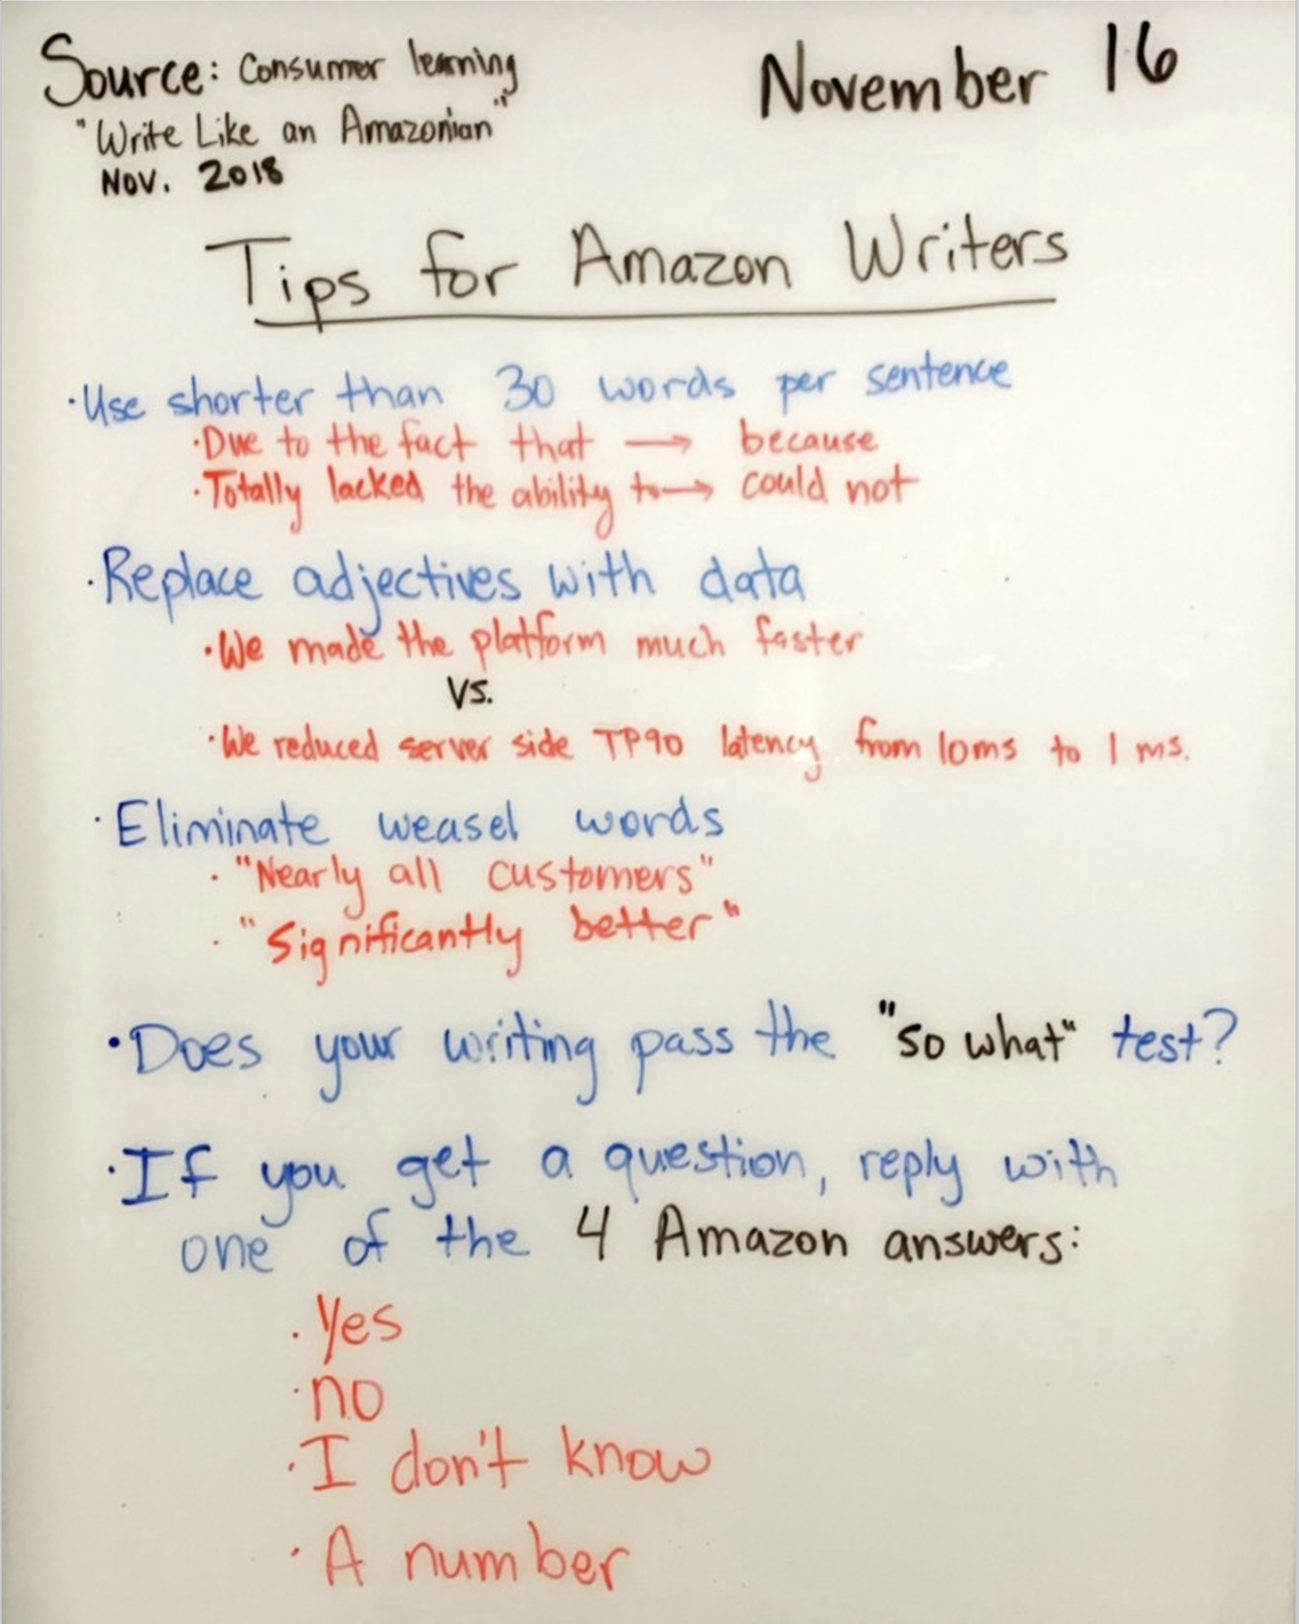 Source: Consumer learning
"Write Like an Amazonian"
Nov. 2018
November 16
Tips for Amazon Writers
·Use shorter than 30 words per sentence
·Due to the fact that → because
·Totally lacked the ability to → could not
·Replace adjectives with data
·We made the platform much faster
VS.
·We reduced server side TP90 latency from 10ms to 1 ms.
·Eliminate weasel words
·"Nearly all customers"
·"Significantly better"
·Does your writing pass the "so what" test?
·If you get a question, reply with
one of the 4 Amazon answers:
·Yes
·no
·I don't know
·A number